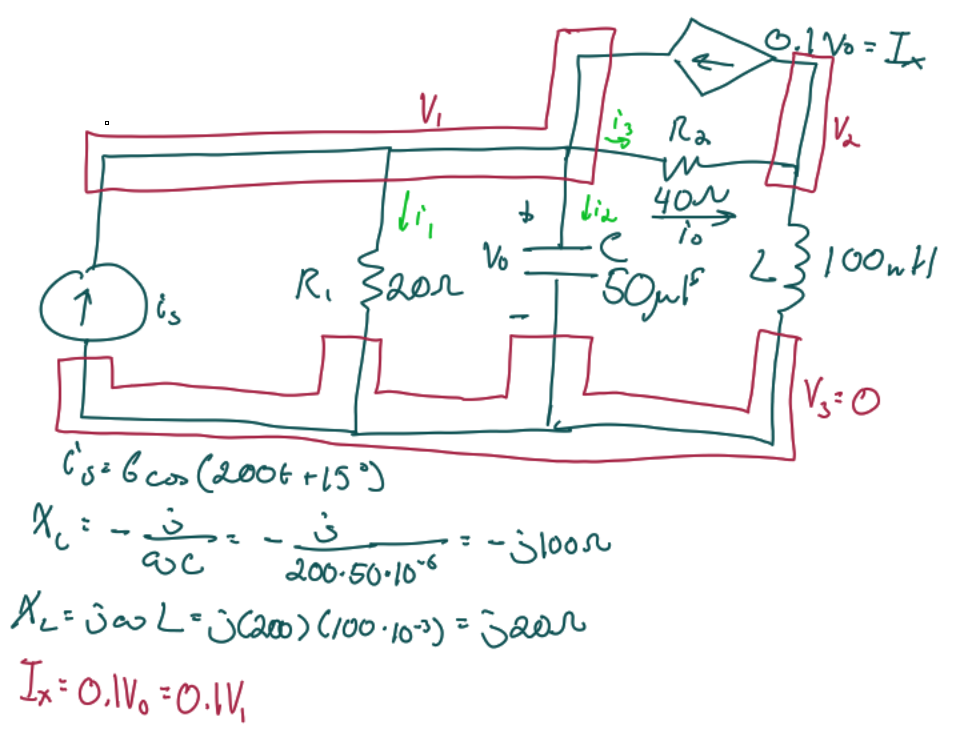 0.1V₀ = Iₓ
V₁
i₃
R₂
V₂
40Ω
i₀
↓i₁
↓i₂
+
V₀
-
C
50μF
R₁
20Ω
L
100mH
iₛ
V₃=0
iₛ = 6cos(200t+15°)
X_C = - j/ωC = - j/200·50·10⁻⁶ = -j100Ω
X_L = jωL = j(200)(100·10⁻³) = j20Ω
Iₓ = 0.1V₀ = 0.1V₁